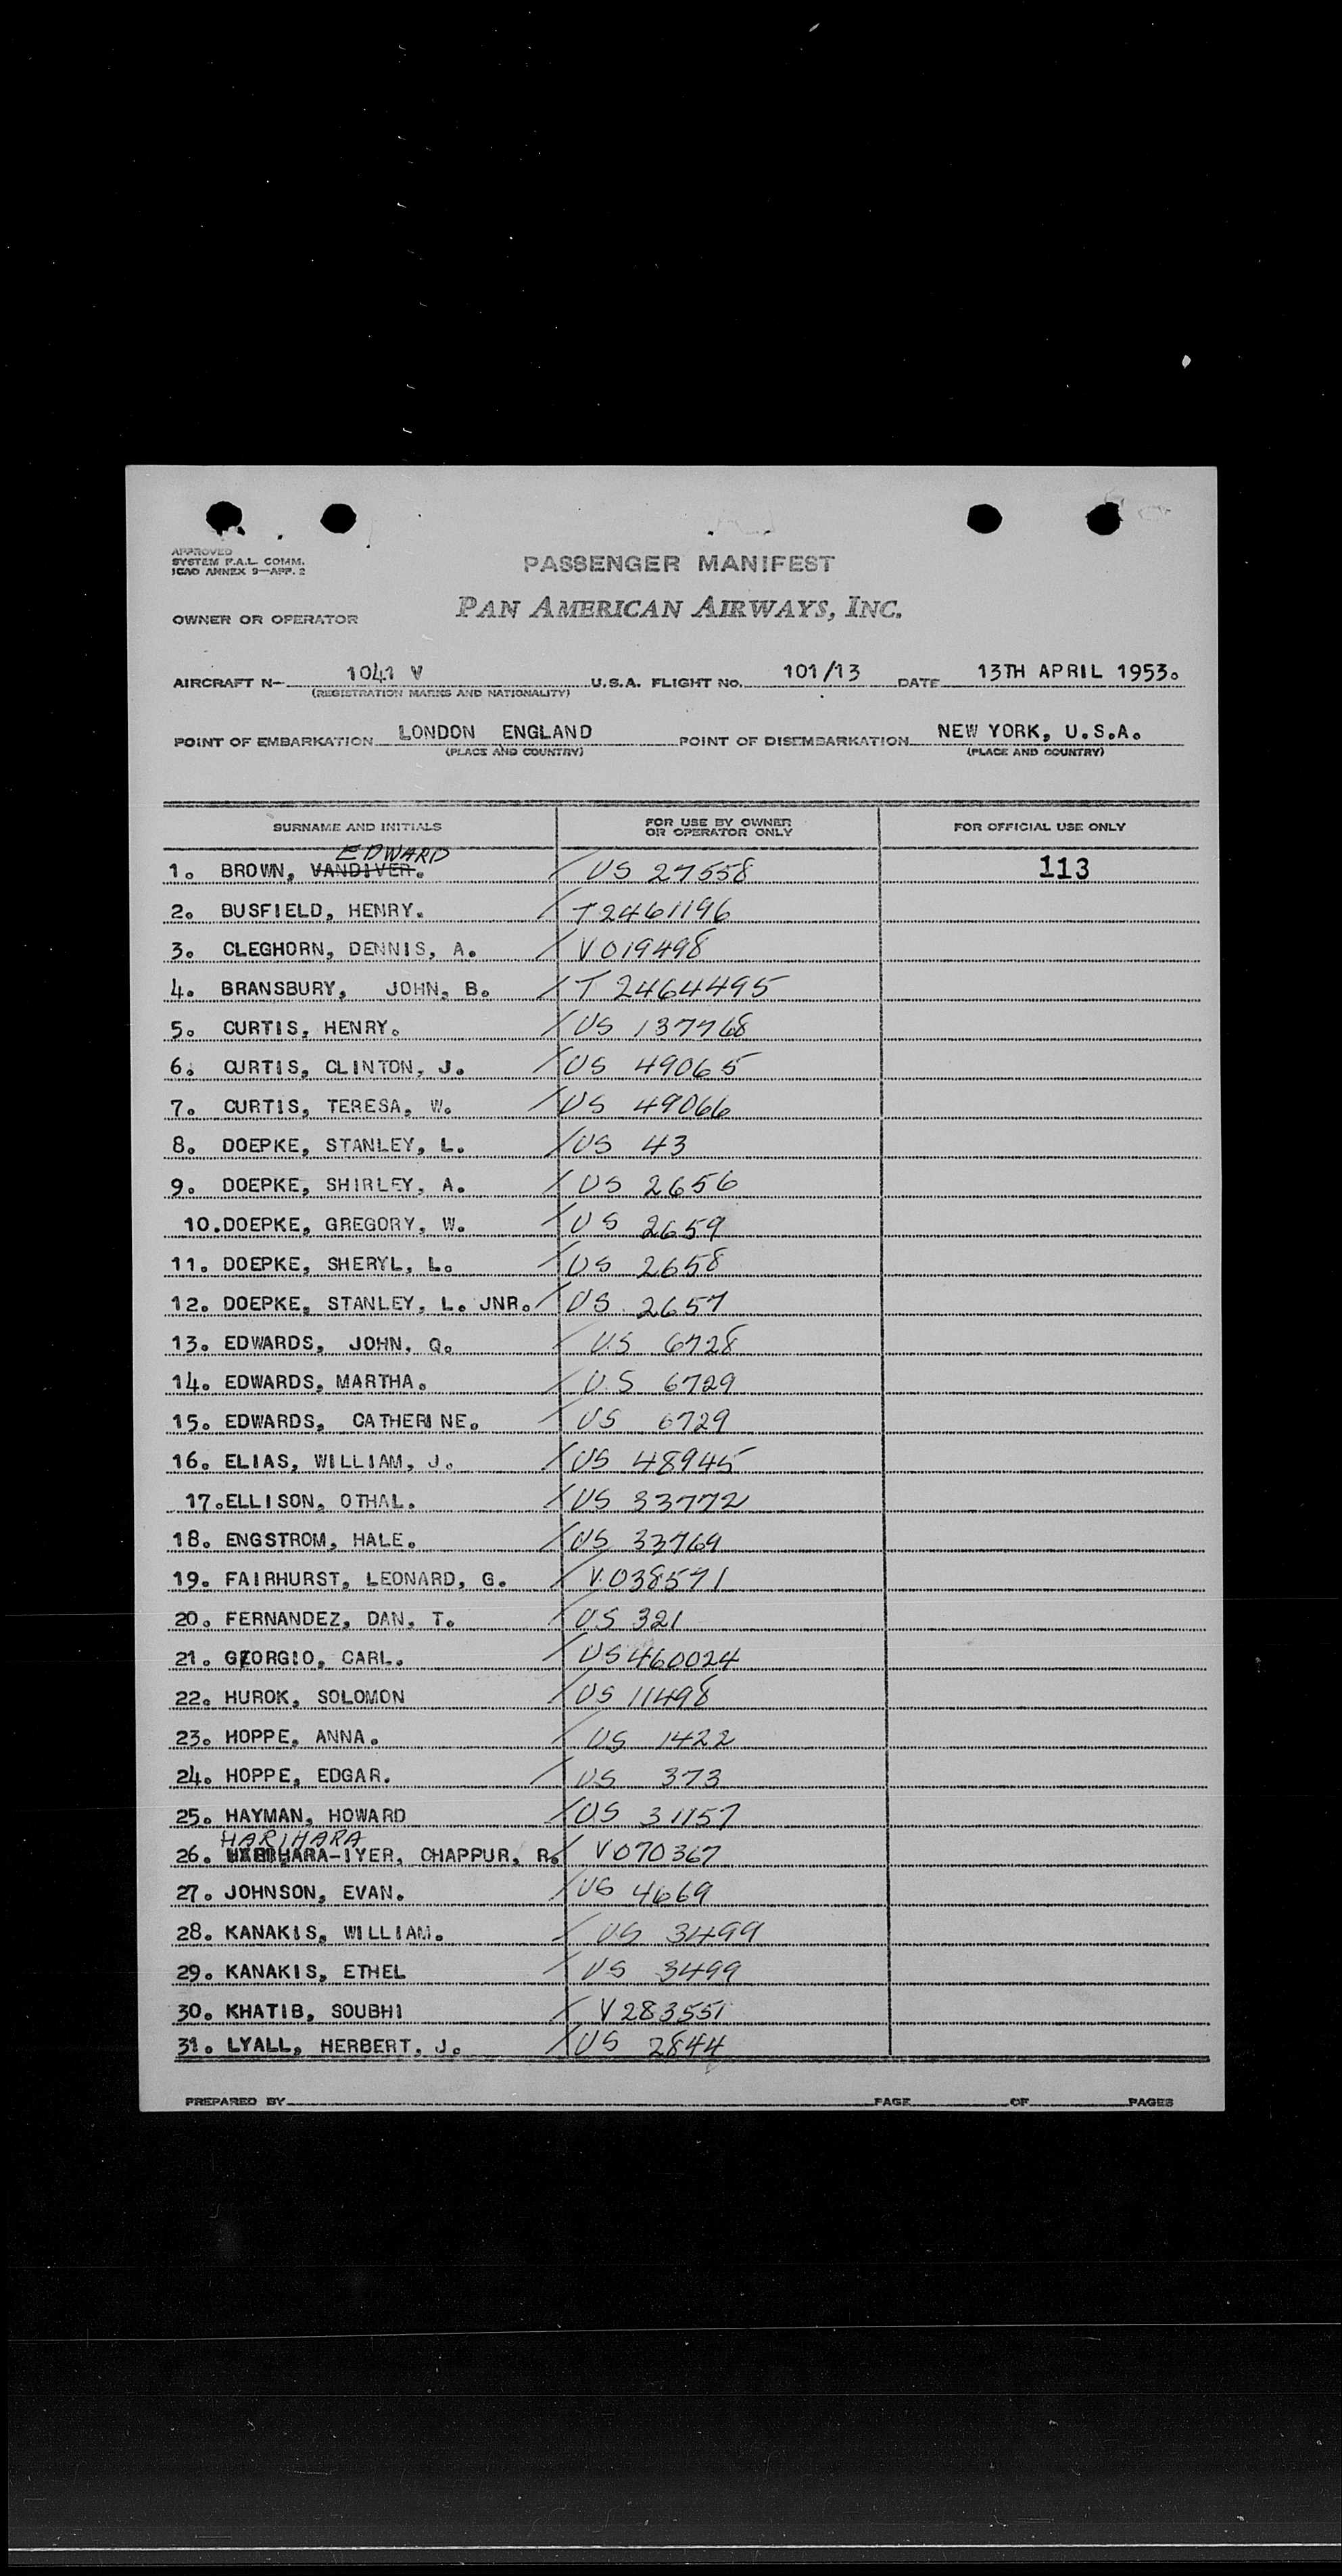 APPROVED
SYSTEM F.A.L. COMM.
ICAO ANNEX 9—APP. 2
PASSENGER MANIFEST
OWNER OR OPERATOR PAN AMERICAN AIRWAYS, INC.
AIRCRAFT N- 1041 V U.S.A. FLIGHT NO. 101/13 DATE 13TH APRIL 1953.
(REGISTRATION MARKS AND NATIONALITY)
POINT OF EMBARKATION LONDON ENGLAND POINT OF DISEMBARKATION NEW YORK, U.S.A.
(PLACE AND COUNTRY) (PLACE AND COUNTRY)
SURNAME AND INITIALS FOR USE BY OWNER OR OPERATOR ONLY FOR OFFICIAL USE ONLY
EDWARD
1. BROWN, VANDIVER. / US 27558 113
2. BUSFIELD, HENRY. / T2461196
3. CLEGHORN, DENNIS, A. / V019498
4. BRANSBURY, JOHN, B. / T 2464495
5. CURTIS, HENRY. / US 137768
6. CURTIS, CLINTON, J. / US 49065
7. CURTIS, TERESA, W. / US 49066
8. DOEPKE, STANLEY, L. / US 43
9. DOEPKE, SHIRLEY, A. / US 2656
10. DOEPKE, GREGORY, W. / US 2659
11. DOEPKE, SHERYL, L. / US 2658
12. DOEPKE, STANLEY, L. JNR. / US 2657
13. EDWARDS, JOHN, Q. / US 6728
14. EDWARDS, MARTHA. / U.S 6729
15. EDWARDS, CATHERINE. / US 6729
16. ELIAS, WILLIAM, J. / US 48945
17. ELLISON, OTHAL. / US 33772
18. ENGSTROM, HALE. / US 33769
19. FAIRHURST, LEONARD, G. / V.038571
20. FERNANDEZ, DAN, T. / US 321
21. GEORGIO, CARL. / US 460024
22. HUROK, SOLOMON / US 11498
23. HOPPE, ANNA. / US 1422
24. HOPPE, EDGAR. / US 373
25. HAYMAN, HOWARD / US 31157
HARIHARA
26. HARIHARA-IYER, CHAPPUR, R. / V070367
27. JOHNSON, EVAN. / US 4669
28. KANAKIS, WILLIAM. / US 3499
29. KANAKIS, ETHEL / US 3499
30. KHATIB, SOUBHI / V283551
31. LYALL, HERBERT, J. / US 2844
PREPARED BY PAGE OF PAGES